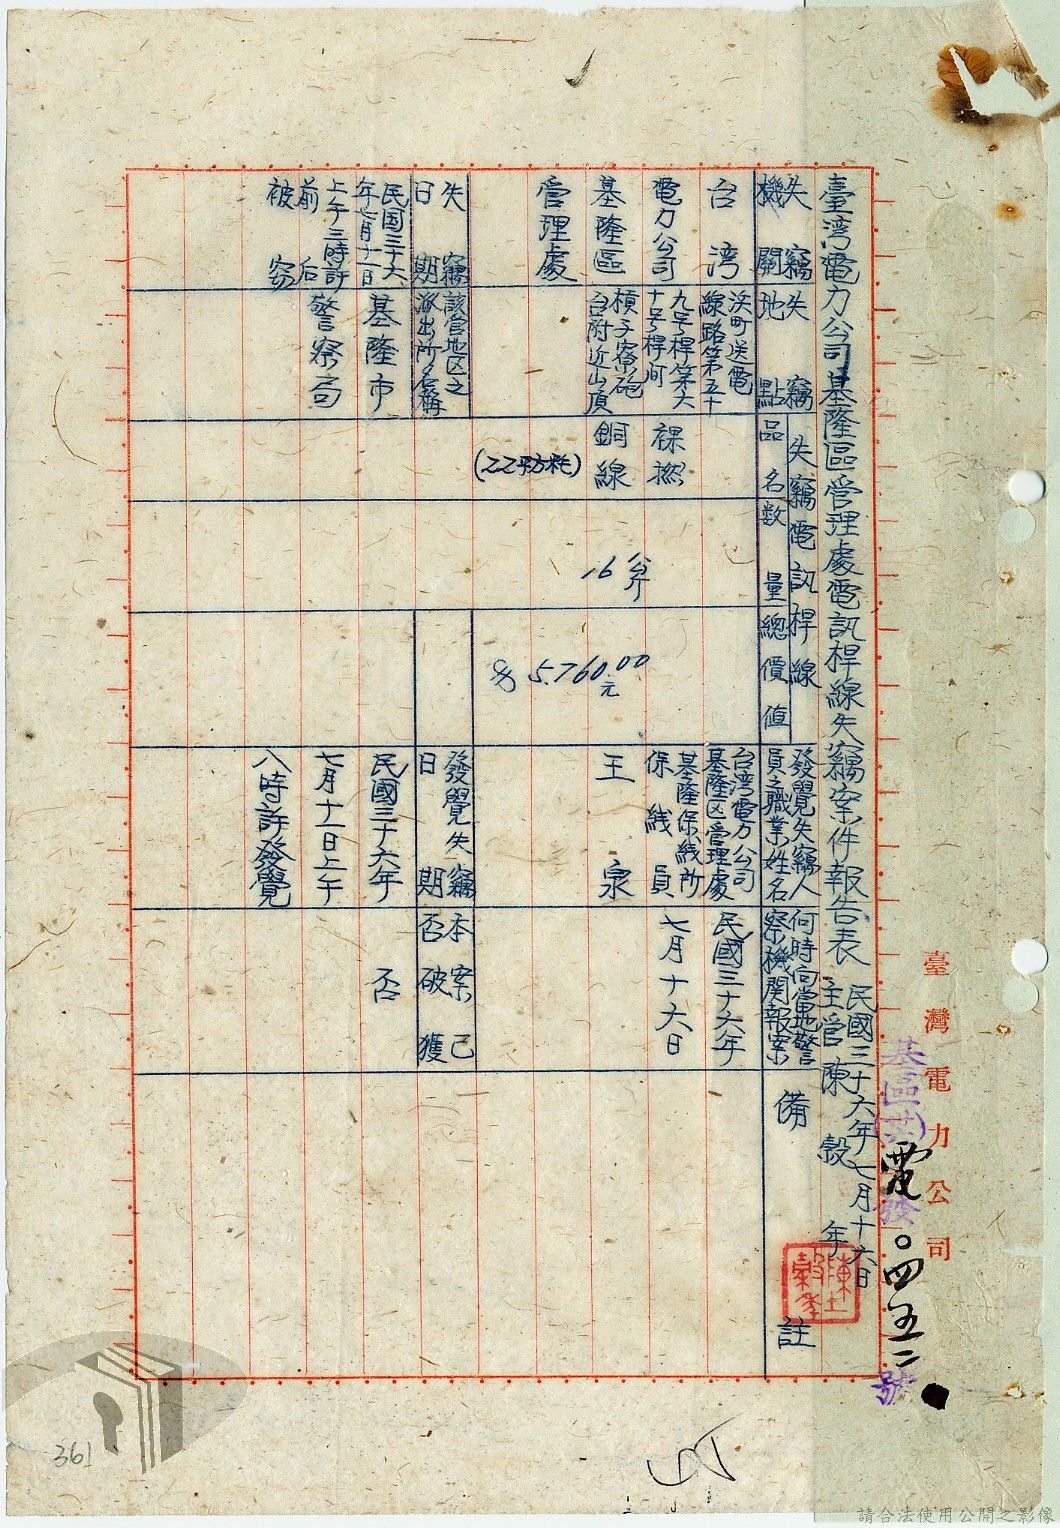 臺灣電力公司
基區(卅六)電發○四五二號
臺湾電力公司基隆區管理處電訊桿線失竊案件報告表
民國三十六年七月十六日
主管 陳穀年
失竊機關
台湾電力公司基隆區管理處
失竊地點
浜町送電
線路第五十
九号桿第六
十号桿间
槓子寮砲
台附近山頂
失竊電訊桿線
品名
裸撚銅線
(22平方粍)
数量
16公斤
總價值
$5,760.00元
發覺失竊人員之職業姓名
台湾電力公司
基隆区管理處
基隆保线所
保线員
王泉
何時向當地警察機関報案
民國三十六年
七月十六日
備註
失竊日期
民国三十六
年七月十一日
上午三時許
前后
被窃
該管地区之派出所名稱
基隆市
警察局
發覺失竊日期
民國三十六年
七月十一日上午
八時許發覺
本案已否破獲
否
361
請合法使用公開之影像